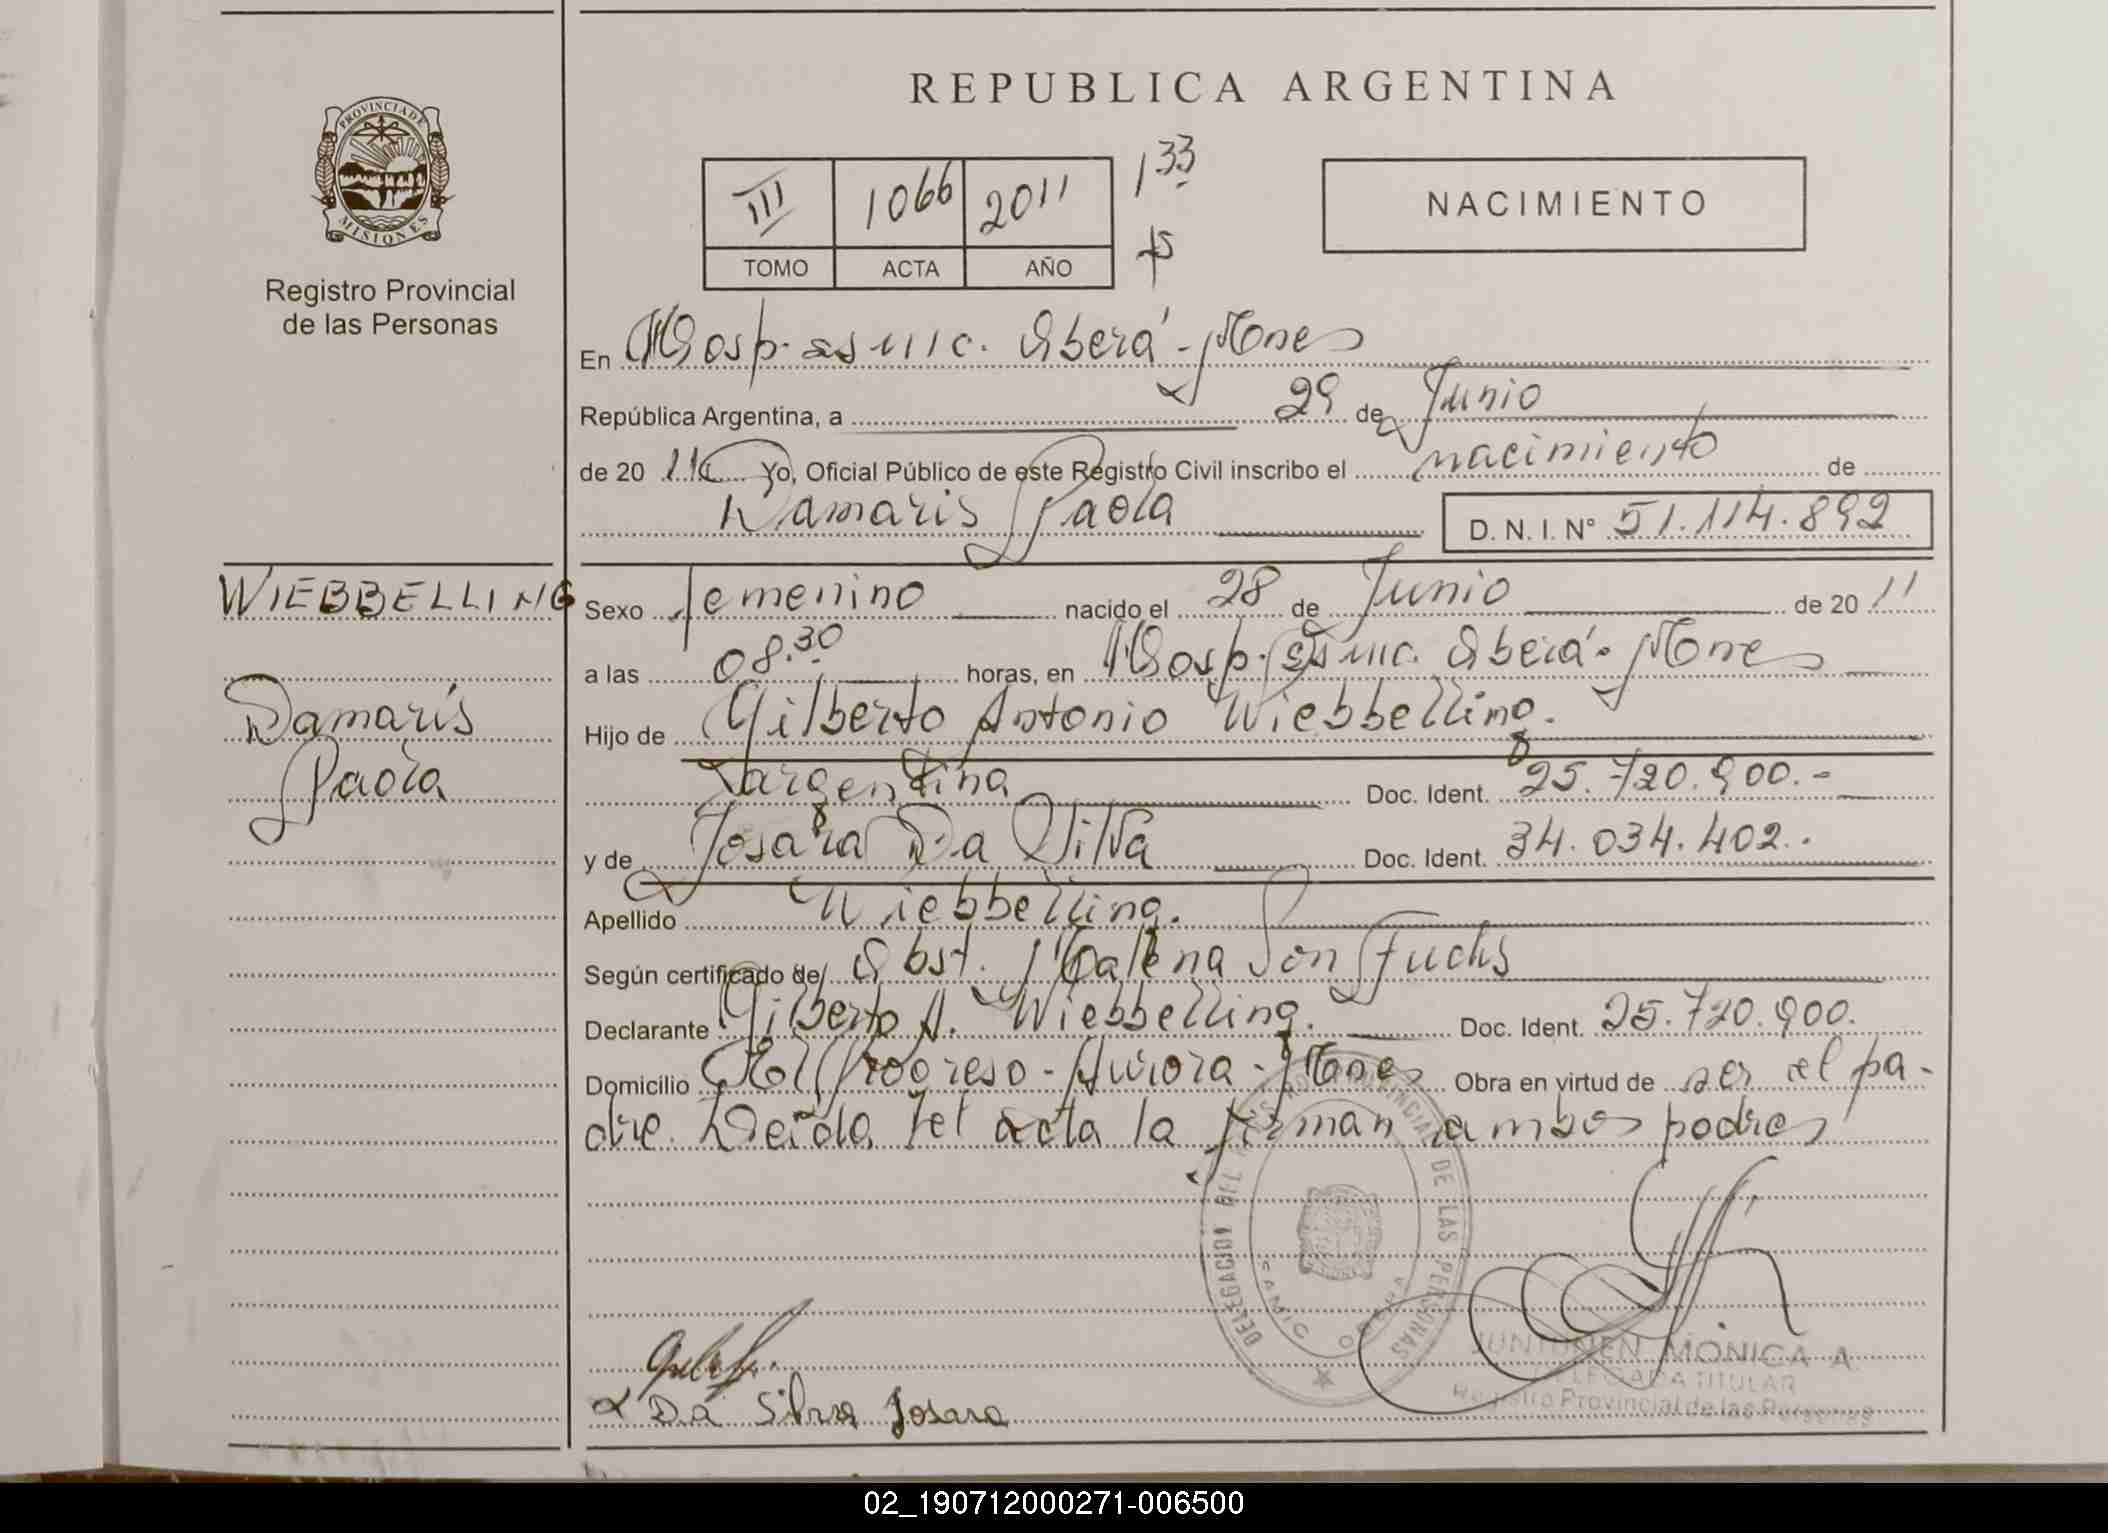 REPUBLICA ARGENTINA
PROVINCIA DE
MISIONES
Registro Provincial
de las Personas
III 1066 2011 1 33
TOMO ACTA AÑO
NACIMIENTO
En Hosp. Samic. Oberá - Mones
República Argentina, a 29 de Junio
de 20 11 Yo, Oficial Público de este Registro Civil inscribo el nacimiento de
Damaris Paola D. N. I. N° 51.114.892
WIEBBELLING
Damaris
Paola
Sexo femenino nacido el 28 de Junio de 20 11
a las 08.30 horas, en Hosp. Samic. Oberá - Mones
Hijo de Gilberto Antonio Wiebbelling.
argentina Doc. Ident. 25.720.900.-
y de Josara Da Silva Doc. Ident. 34.034.402.
Apellido Wiebbelling.
Según certificado de Obst. Malena Von Fuchs
Declarante Gilberto A. Wiebbelling. Doc. Ident. 25.720.900.
Domicilio El Progreso - Aurora - Mones Obra en virtud de ser el pa-
dre. Leída el acta la firman ambos padres
DELEGACION DEL REGISTRO PROVINCIAL DE LAS PERSONAS
SAMIC OBERA
JUNTUNEN MONICA A.
DELEGADA TITULAR
Registro Provincial de las Personas
Da Silva Josara
02_190712000271-006500